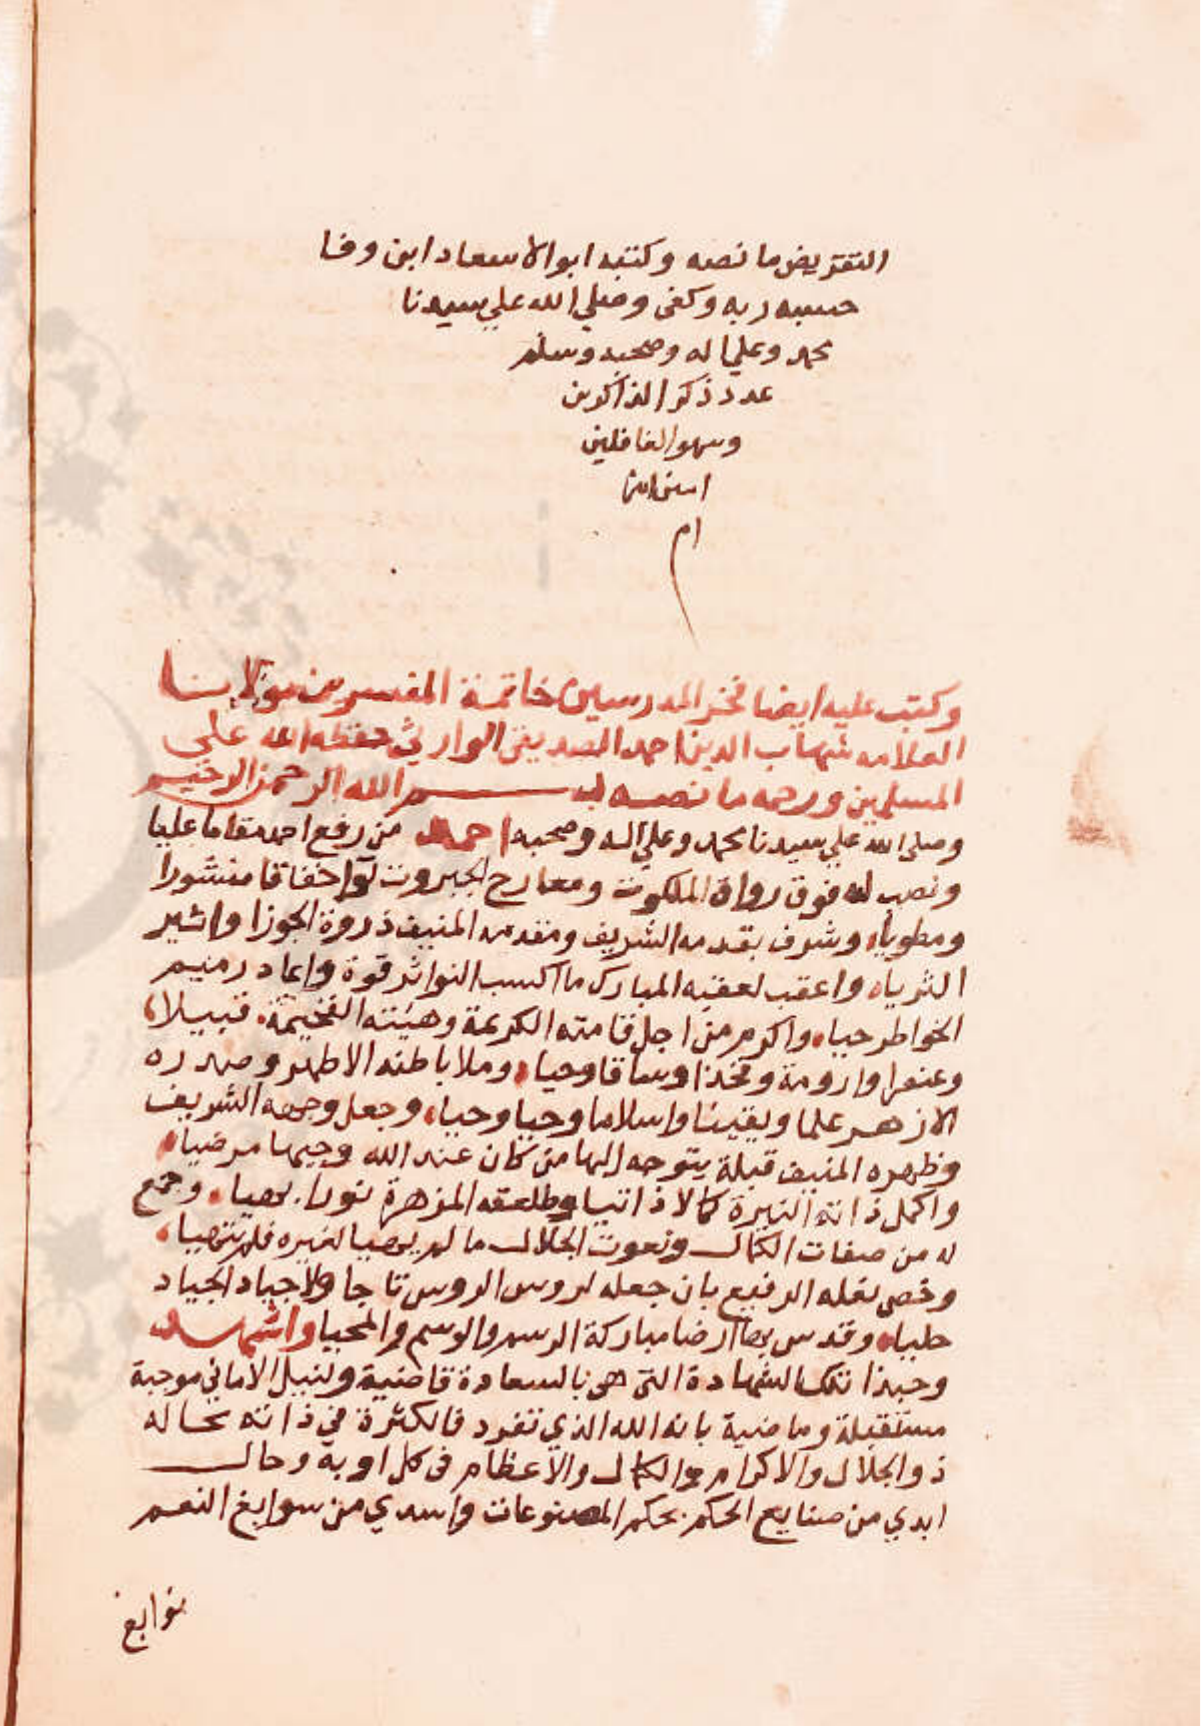 التقريض ما نصه وكتبه ابوالاسعاد ابن وفا
حسبه ربه وكفى وصلي الله علي سيدنا
محمد وعلي اله وصحبه وسلم
عدد ذكر الذاكرين
وسهو الغافلين
امين امين
ام
وكتب عليه ايضا فخر المدرسين خاتمة المفسرين مولانا
العلامه شهاب الدين احمد الصديقي الوارثي حفظه الله علي
المسلمين ورحمه ما نصه بسم الله الرحمن الرحيم
وصلى الله علي سيدنا محمد وعلي اله وصحبه احمد من رفع احمد مقاما عليا
ونصب له فوق رواق الملكوت ومعارج الجبروت لوا خفاقا منشورا
ومطويا وشرف بقدمه الشريف ومقدمه المنيف ذروة الجوزا واثير
الثريا واعقب لعقبه المبارك ما اكسب النواثر قوة واعاد رميم
الخواطر حيا واكرم من اجل قامته الكريمة وهيئته الفخيمة قبيلا
وعنصرا وارومة وفخذا وساقا وحيا وملا باطنه الاطهر وصدره
الازهر علما ويقينا واسلاما وحبا وحيا وجعل وجهه الشريف
وظهره المنيف قبلة يتوجه اليها من كان عند الله وجيها مرضيا
واكمل ذاته النيرة كمالا ذاتيا وطلعته المزهرة نورا بهيا وجمع
له من صفات الكمال ونعوت الجلال ما لم يهيا لغيره فلم تتهيا
وخص نعله الرفيع بان جعله لروس الروس تاجا ولاجياد الجياد
حليا وقدس بها ارضا مباركة الرسم والوسم والمحيا واشهد
وحبذا تلك الشهادة التي هي بالسعادة قاضية ولنيل الاماني موجبة
مستقبلة وماضية بانه الله الذي تفرد فالكثرة في ذاته محاله
ذو الجلال والاكرام والكمال والاعظام في كل اوبة وحال
ابدي من صنايع الحكم بحكم المصنوعات واسدي من سوابغ النعم
نوابغ